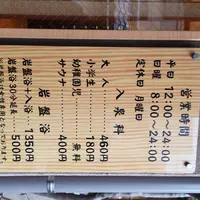 営業時間
平日 12:00~24:00
日曜 8:00~24:00
定休日 月曜日
入泉料
大人 460円
小学生 180円
幼稚園児 無料
サウナ 400円
岩盤浴
岩盤浴+入浴 1350円
岩盤浴30分延長 500円